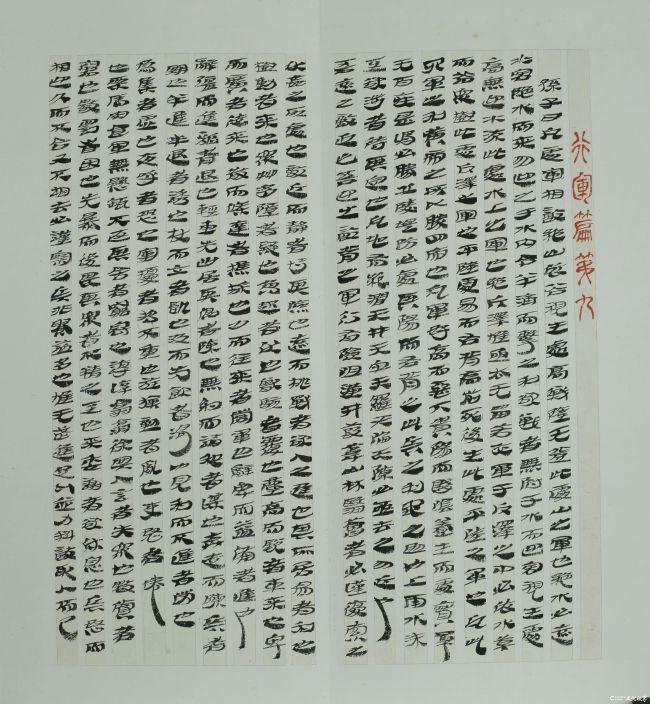 行軍篇第九
孫子曰凡處軍相敵絕山依谷視生處高戰隆无登此處山之軍也絕水必遠
水客絕水而來勿迎之于水內令半濟而擊之利欲戰者無附于水而迎客視生處
高無迎水流此處水上之軍也絕斥澤惟亟去无留若交軍于斥澤之中必依水草
而背衆樹此處斥澤之軍也平陸處易而右背高前死後生此處平陸之軍也凡此
四軍之利黃帝之所以勝四帝也凡軍好高而惡下貴陽而賤陰養生而處實軍
无百疾是謂必勝丘陵堤防必處其陽而右背之此兵之利地之助也上雨水沫
至欲涉者待其定也凡地有絕澗天井天牢天羅天陷天隙必亟去之勿近
吾遠之敵近之吾迎之敵背之軍行有險阻潢井葭葦山林翳薈者必謹復索之
伏姦之所處也敵近而靜者恃其險也遠而挑戰者欲人之進也其所居易者利也
樹動者來也衆草多障者疑也鳥起者伏也獸駭者覆也塵高而銳者車來也卑
而廣者徒來也散而條達者樵採也少而往來者營軍也辭卑而益備者進也
辭彊而進驅者退也輕車先出居其側者陳也無約而請和者謀也奔走而陳兵者
期也半進半退者誘也杖而立者飢也汲而先飲者渴也見利而不進者勞也
鳥集者虛也夜呼者恐也軍擾者將不重也旌旗動者亂也吏怒者倦
也粟馬肉食軍無懸缻不返其舍者窮寇也諄諄翕翕徐與人言者失衆也數賞者
窘也數罰者困也先暴而後畏其衆者不精之至也來委謝者欲休息也兵怒而
相迎久而不合又不相去必謹察之兵非貴益多也惟无武進足以並力料敵取人而已